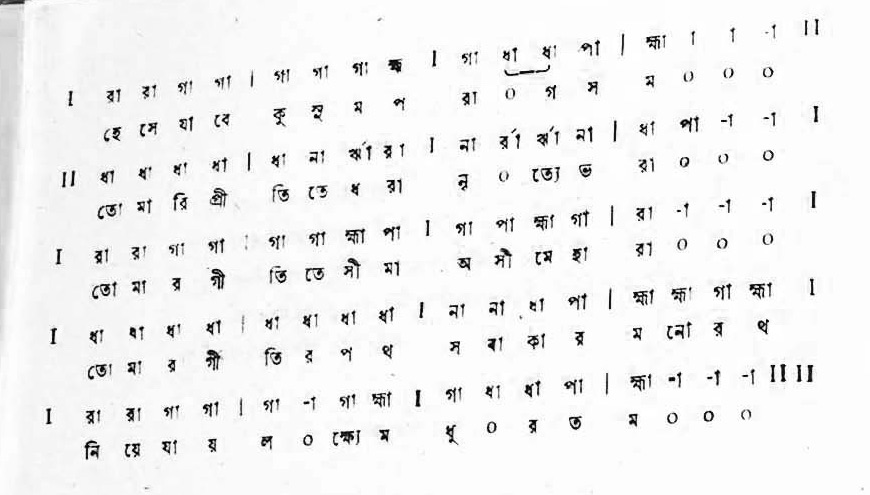 I রা রা গা গা | গা গা গা হ্ম I গা ধা ধা পা | হ্মা া া -া II
হে সে যা বে কু সু ম প রা ০ গ স ম ০ ০ ০
II ধা ধা ধা ধা | ধা না র্ঋা র্রা I না র্রা র্ঋা না | ধা পা -া -া I
তো মা রি প্রী তি তে ধ রা নৃ ০ ত্যে ভ রা ০ ০ ০
I রা রা গা গা | গা গা হ্মা পা I গা পা হ্মা গা | রা -া -া -া I
তো মা র গী তি তে সী মা অ সী মে হা রা ০ ০ ০
I ধা ধা ধা ধা | ধা ধা ধা ধা I না না ধা পা | হ্মা হ্মা গা হ্মা I
তো মা র গী তি র প থ স বা কা র ম নো র থ
I রা রা গা গা | গা -া গা হ্মা I গা ধা ধা পা | হ্মা -া -া -া II II
নি য়ে যা য় ল ০ ক্ষ্যে ম ধু ০ র ত ম ০ ০ ০